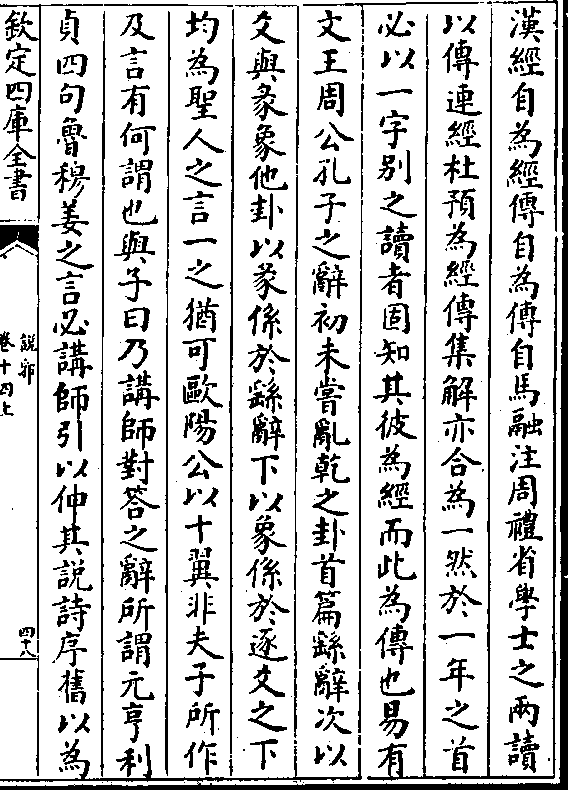 漢經自為經傳自為傳自馬融注周禮省學士之兩讀
以傳連經杜預為經傳集解亦合為一然於一年之首
必以一字别之讀者固知其彼為經而此為傳也易有
文王周公孔子之辭初未嘗亂乾之卦首篇繇辭次以
爻與彖象他卦以彖係於繇辭下以象係於逐爻之下
均為聖人之言一之猶可歐陽公以十翼非夫子所作
及言有何謂也與子曰乃講師對答之辭所謂元亨利
貞四句魯穆姜之言必講師引以伸其説詩序舊以為
欽定四庫全書
説郛
卷十四上
四十八